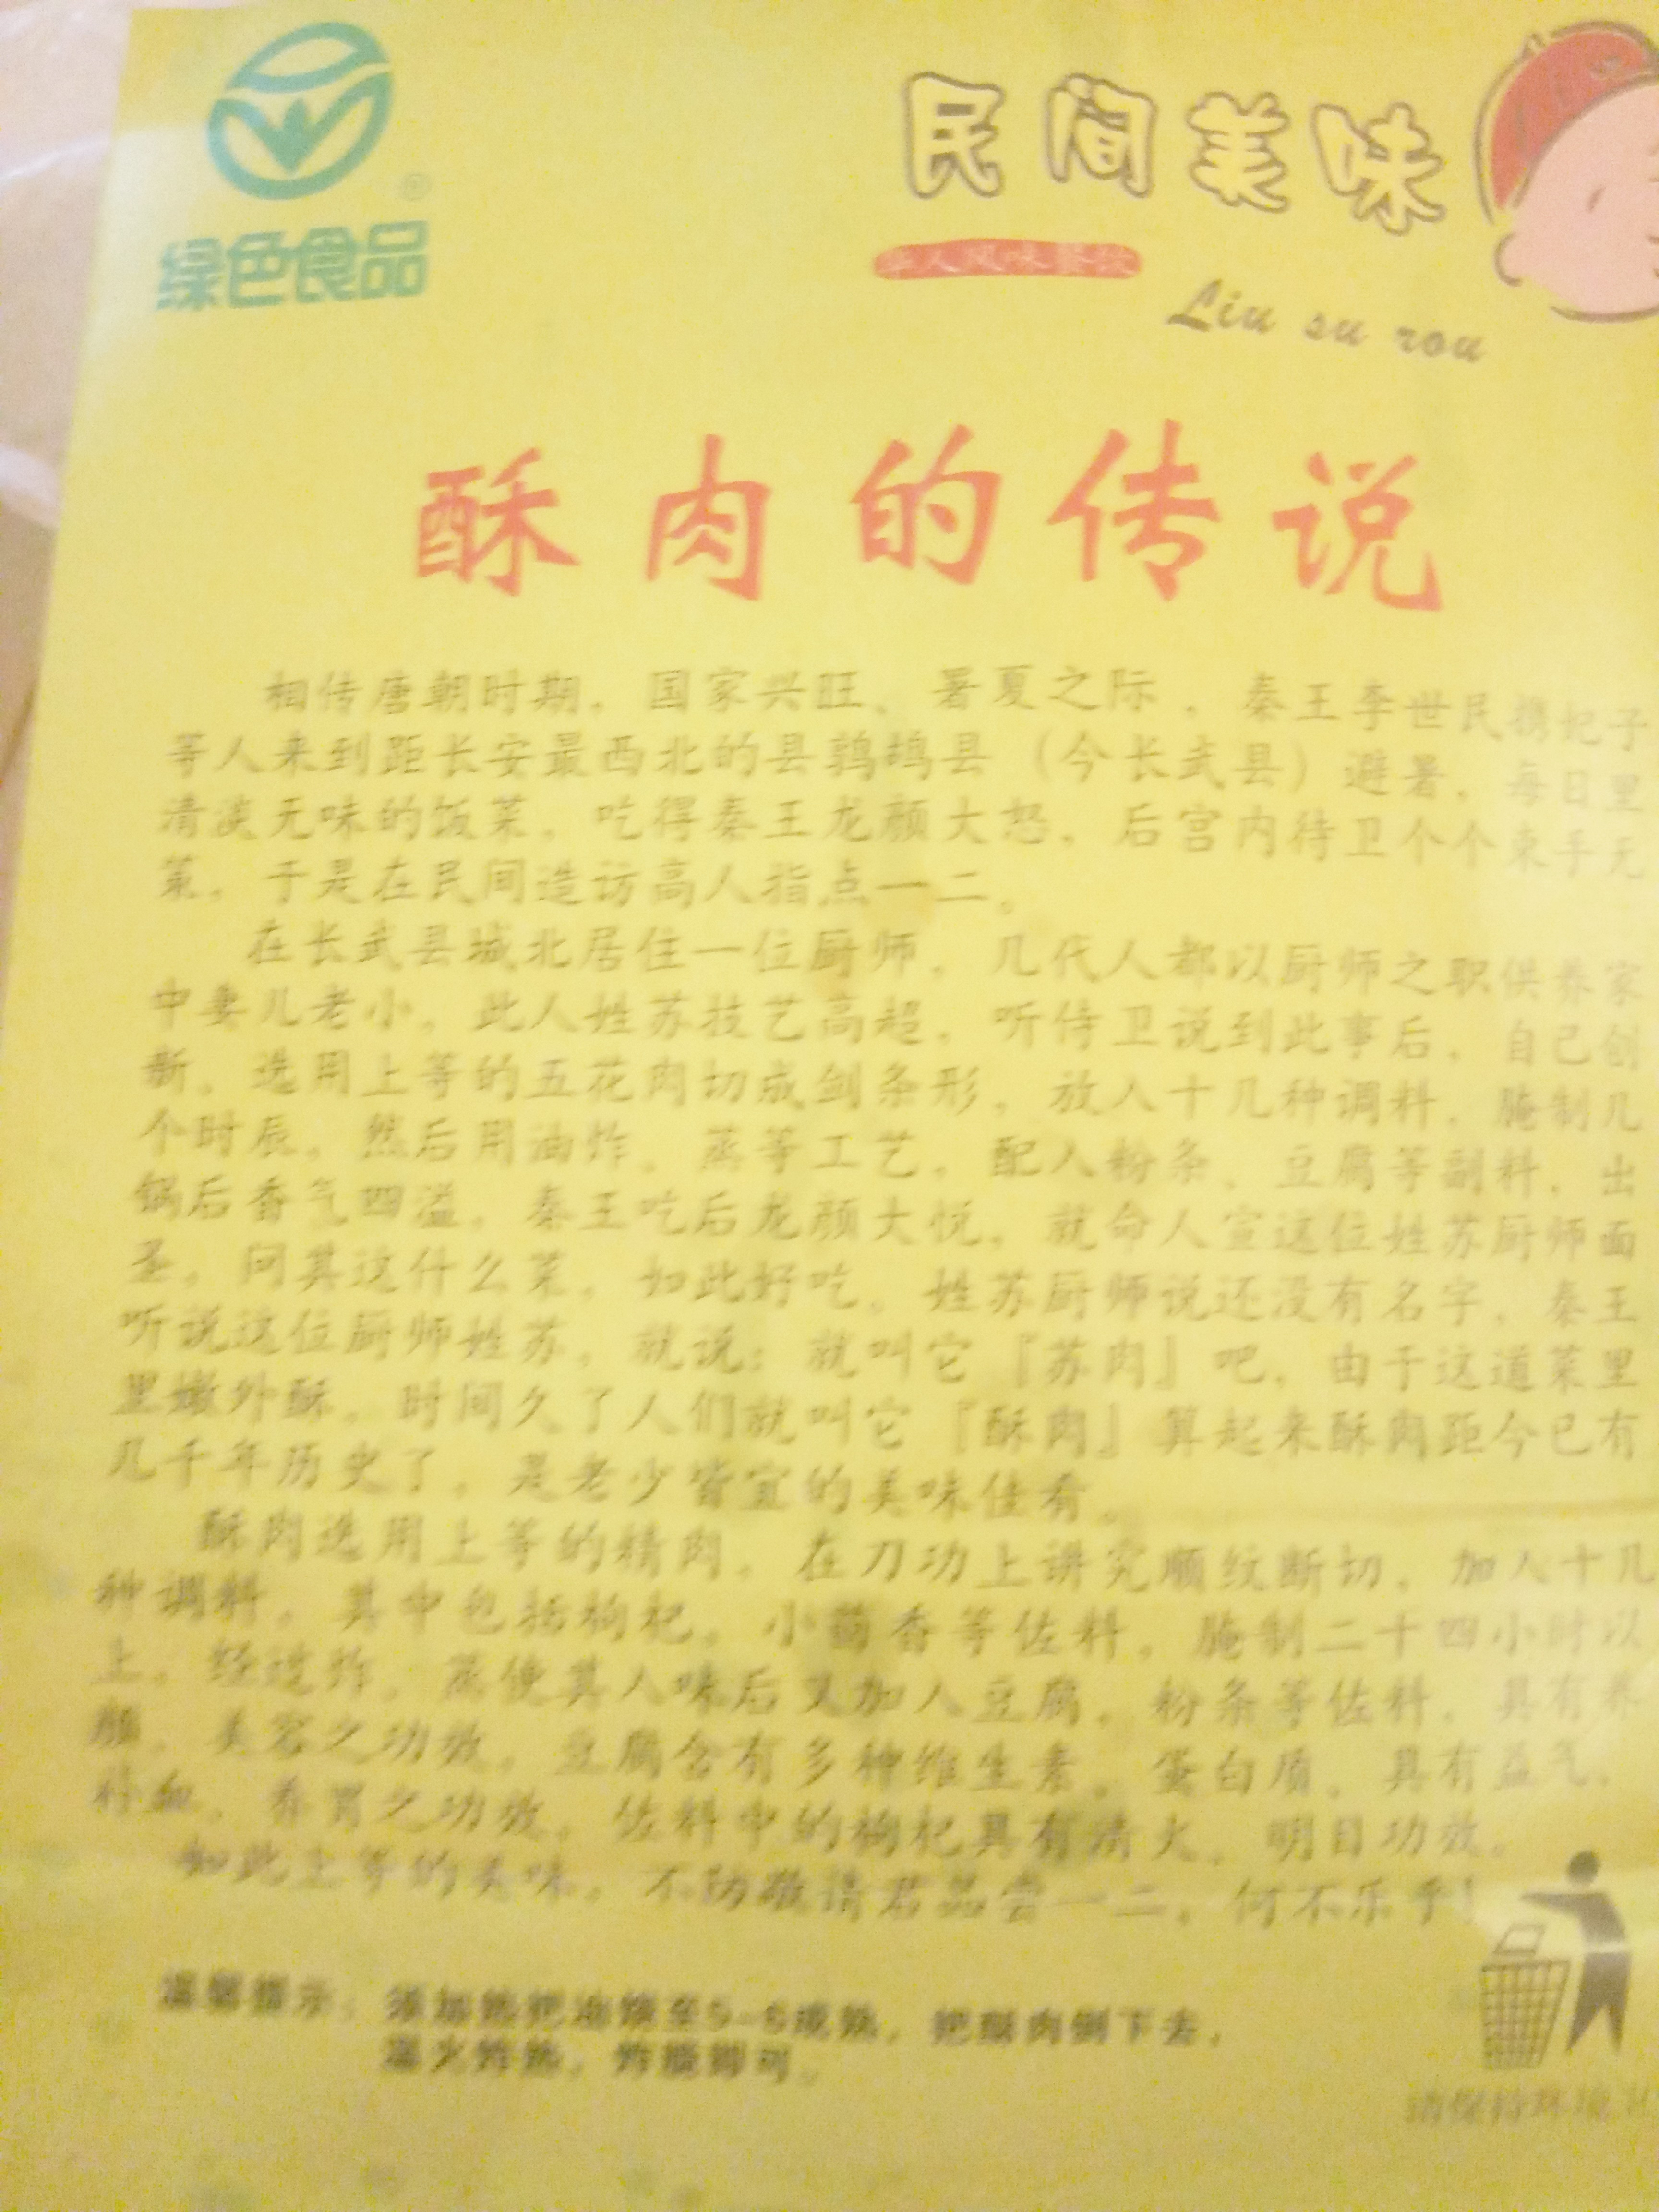 绿色食品
民间美味
Liu su rou
酥肉的传说
相传唐朝时期，国家兴旺、暑夏之际，秦王李世民携妃子
等人来到距长安最西北的县鹑鸪县（今长武县）避暑，每日里
清淡无味的饭菜，吃得秦王龙颜大怒，后宫内待卫个个束手无
策，于是在民间造访高人指点一二。
在长武县城北居住一位厨师，几代人都以厨师之职供养家
中妻儿老小，此人姓苏技艺高超，听侍卫说到此事后，自己创
新，选用上等的五花肉切成剑条形，放入十几种调料，腌制几
个时辰，然后用油炸、蒸等工艺，配入粉条、豆腐等副料，出
锅后香气四溢，秦王吃后龙颜大悦，就命人宣这位姓苏厨师面
圣，问其这什么菜，如此好吃。姓苏厨师说还没有名字，秦王
听说这位厨师姓苏，就说：就叫它『苏肉』吧，由于这道菜里
里嫩外酥，时间久了人们就叫它『酥肉』算起来酥肉距今已有
几千年历史了，是老少皆宜的美味佳肴。
酥肉选用上等的精肉，在刀功上讲究顺纹断切，加入十几
种调料，其中包括枸杞，小茴香等佐料，腌制二十四小时以
上，经过炸，蒸使其入味后又加入豆腐，粉条等佐料，具有养
颜，美容之功效。豆腐含有多种维生素，蛋白质，具有益气，
补血，养胃之功效，佐料中的枸杞具有清火，明目功效。
如此上等的美味，不防敬请君品尝一二，何不乐乎！
温馨提示：须加热把油烧至5-6成热，把酥肉倒下去，
温火炸热，炸脆即可。
请保持环境卫